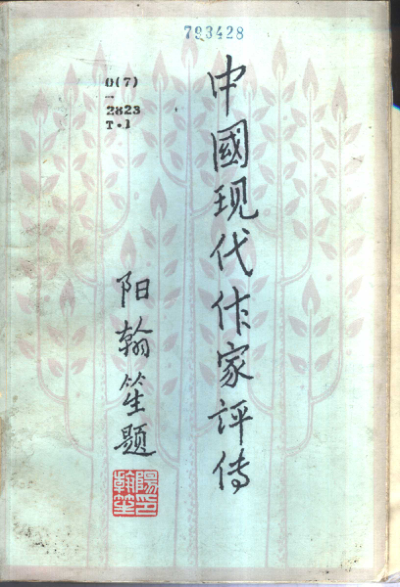 793428
0(7)
—
2823
T·1
中國现代作家評传
阳翰笙题
陽翰笙印